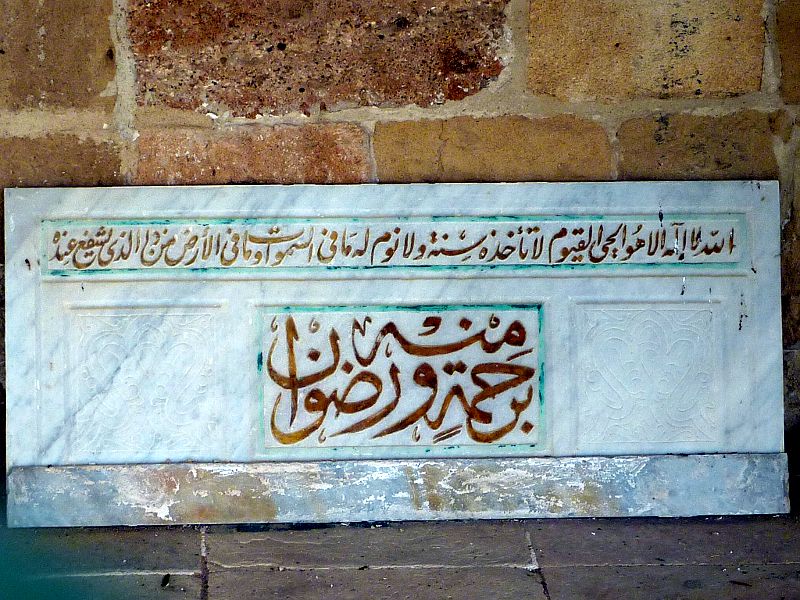 الله لا إله الا هو الحي القيوم لا تأخذه سنة ولا نوم له ما في السموات وما في الأرض من ذا الذي يشفع عنده
برحمة منه ورضوان